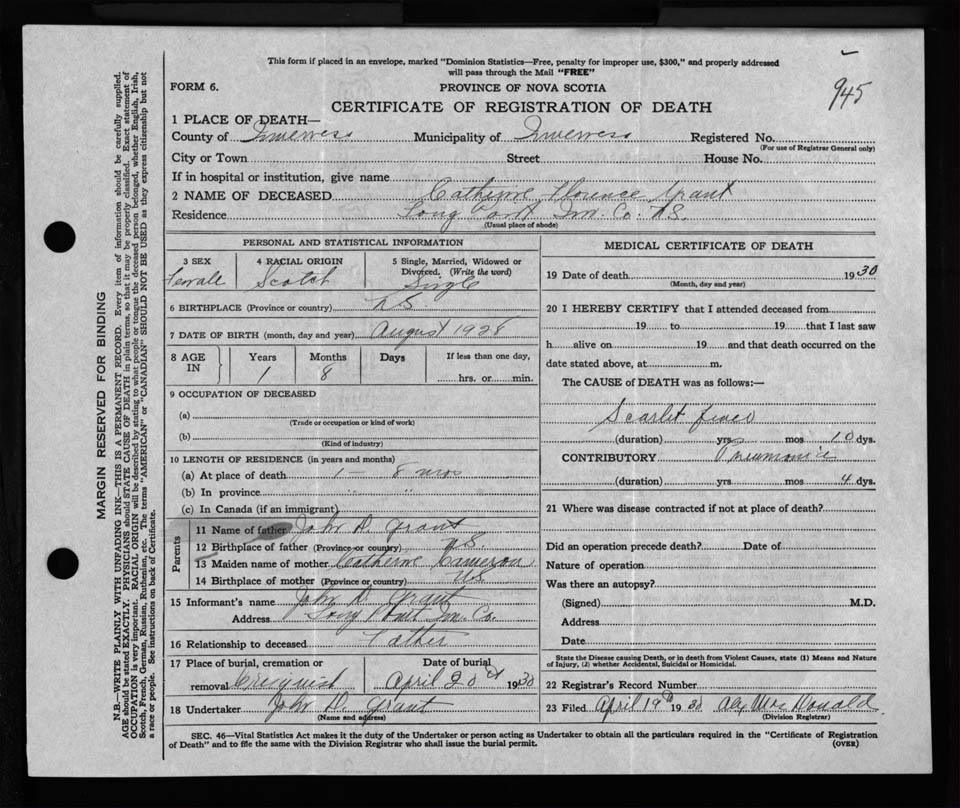 This form if placed in an envelope, marked "Dominion Statistics—Free, penalty for improper use, $300," and properly addressed
will pass through the Mail "FREE"
FORM 6.
PROVINCE OF NOVA SCOTIA
945
CERTIFICATE OF REGISTRATION OF DEATH
1 PLACE OF DEATH—
County of Inverness Municipality of Inverness Registered No.
(For use of Registrar General only)
City or Town Street House No.
If in hospital or institution, give name
2 NAME OF DECEASED Catherine Florence Grant
Residence Long Point Inv. Co. N.S.
(Usual place of abode)
PERSONAL AND STATISTICAL INFORMATION
3 SEX 4 RACIAL ORIGIN 5 Single, Married, Widowed or
Divorced. (Write the word)
Female Scotch Single
6 BIRTHPLACE (Province or country) N.S.
7 DATE OF BIRTH (month, day and year) August 1928
8 AGE IN Years Months Days If less than one day,
1 8 hrs. or min.
9 OCCUPATION OF DECEASED
(a)
(Trade or occupation or kind of work)
(b)
(Kind of industry)
10 LENGTH OF RESIDENCE (in years and months)
(a) At place of death 1 – 8 mos
(b) In province " "
(c) In Canada (if an immigrant)
Parents
11 Name of father John D. Grant
12 Birthplace of father (Province or country) N.S.
13 Maiden name of mother Catherine Cameron
14 Birthplace of mother (Province or country) N.S.
15 Informant's name John D. Grant
Address Long Point Inv. Co.
16 Relationship to deceased Father
17 Place of burial, cremation or Date of burial
removal Creignish April 20th 1930
18 Undertaker John D. Grant
(Name and address)
MEDICAL CERTIFICATE OF DEATH
19 Date of death 1930
(Month, day and year)
20 I HEREBY CERTIFY that I attended deceased from
19 to 19 that I last saw
h alive on 19 and that death occurred on the
date stated above, at m.
The CAUSE of DEATH was as follows:—
Scarlet fever
(duration) yrs. mos 10 dys.
CONTRIBUTORY Pneumonia
(duration) yrs. mos 4 dys.
21 Where was disease contracted if not at place of death?
Did an operation precede death? Date of
Nature of operation
Was there an autopsy?
(Signed) M.D.
Address
Date
State the Disease causing Death, or in death from Violent Causes, state (1) Means and Nature
of Injury, (2) whether Accidental, Suicidal or Homicidal.
22 Registrar's Record Number
23 Filed April 19th 1930 Alex MacDonald
(Division Registrar)
SEC. 46—Vital Statistics Act makes it the duty of the Undertaker or person acting as Undertaker to obtain all the particulars required in the "Certificate of Registration
of Death" and to file the same with the Division Registrar who shall issue the burial permit. (OVER)
MARGIN RESERVED FOR BINDING
N.B.—WRITE PLAINLY WITH UNFADING INK—THIS IS A PERMANENT RECORD. Every item of information should be carefully supplied.
AGE should be stated EXACTLY. PHYSICIANS should STATE CAUSE OF DEATH in plain terms, so that it may be properly classified. Exact statement of
OCCUPATION is very important. RACIAL ORIGIN will be described by stating to what people or tongue the deceased person belonged, whether English, Irish,
Scotch, French, German, Russian, Ruthenian, etc. The terms "AMERICAN" or "CANADIAN" SHOULD NOT BE USED as they express citizenship but not
a race or people. See instructions on back of Certificate.